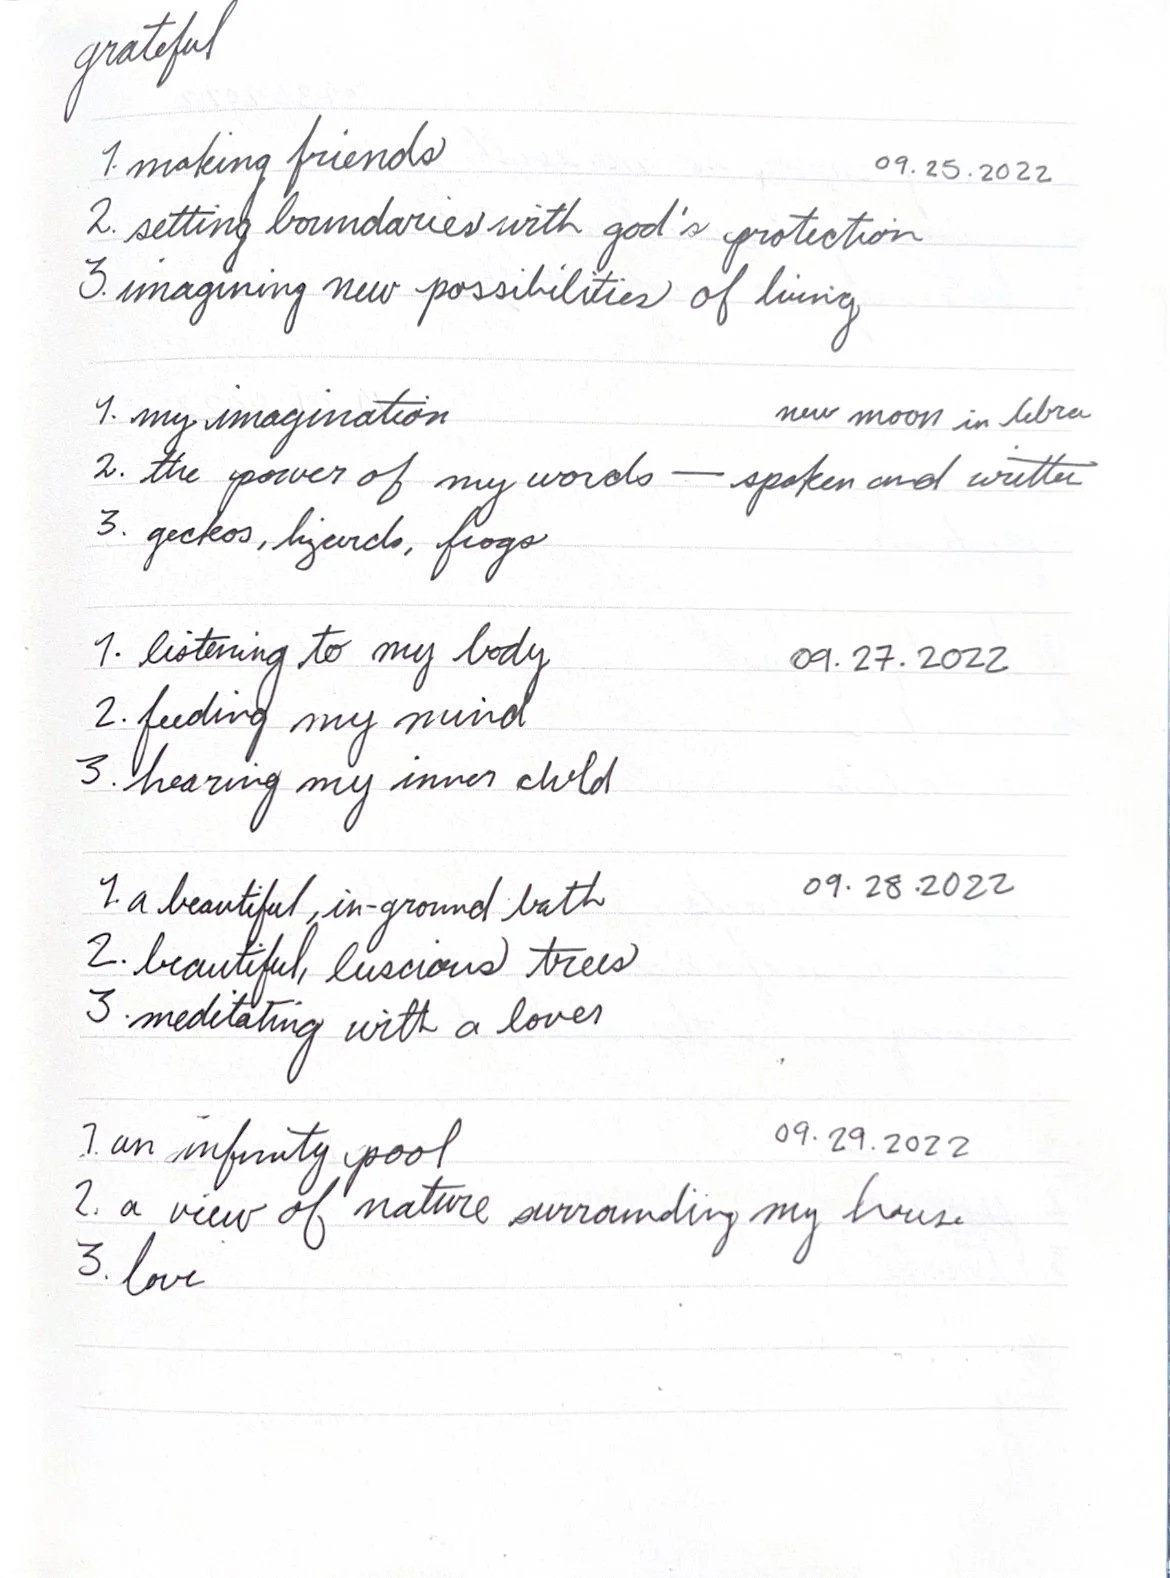 grateful
1. making friends 09.25.2022
2. setting boundaries with god's protection
3. imagining new possibilities of living
1. my imagination new moon in libra
2. the power of my words — spoken and written
3. geckos, lizards, frogs
1. listening to my body 09.27.2022
2. feeding my mind
3. hearing my inner child
1. a beautiful, in-ground bath 09.28.2022
2. beautiful, luscious trees
3. meditating with a lover
1. an infinity pool 09.29.2022
2. a view of nature surrounding my house
3. love